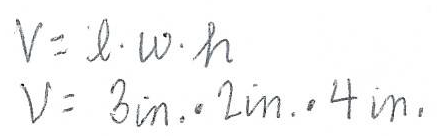 V = l · w · h
V = 3in. · 2in. · 4in.